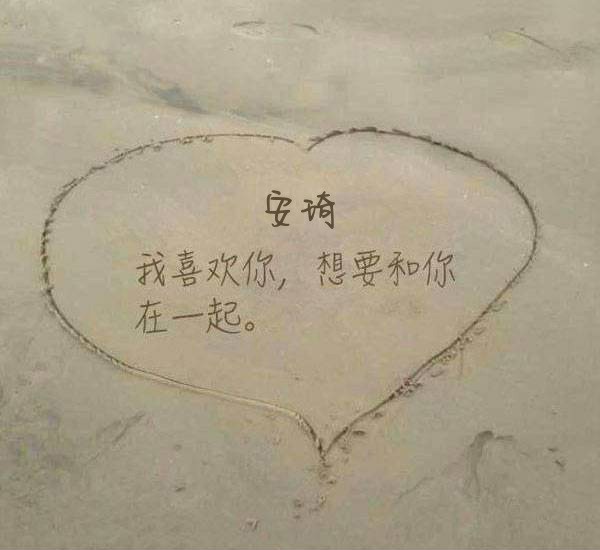 安琦
我喜欢你，想要和你
在一起。